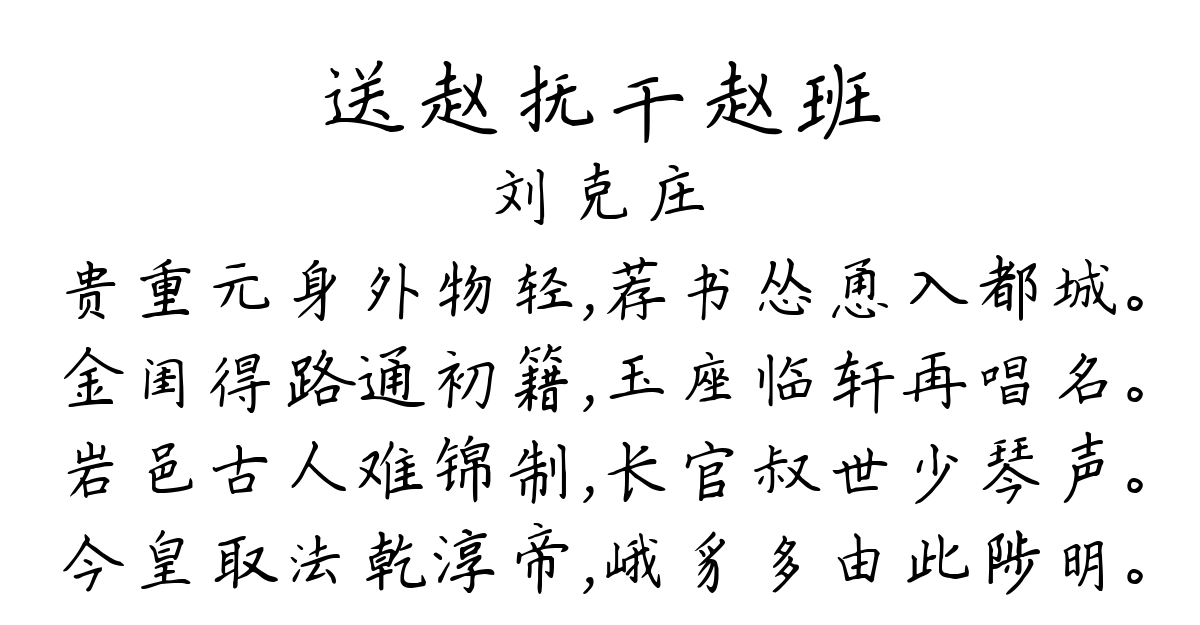 送赵抚干赵班
刘克庄
贵重元身外物轻,荐书怂恿入都城。
金闺得路通初籍,玉座临轩再唱名。
岩邑古人难锦制,长官叔世少琴声。
今皇取法乾淳帝,峨豸多由此陟明。